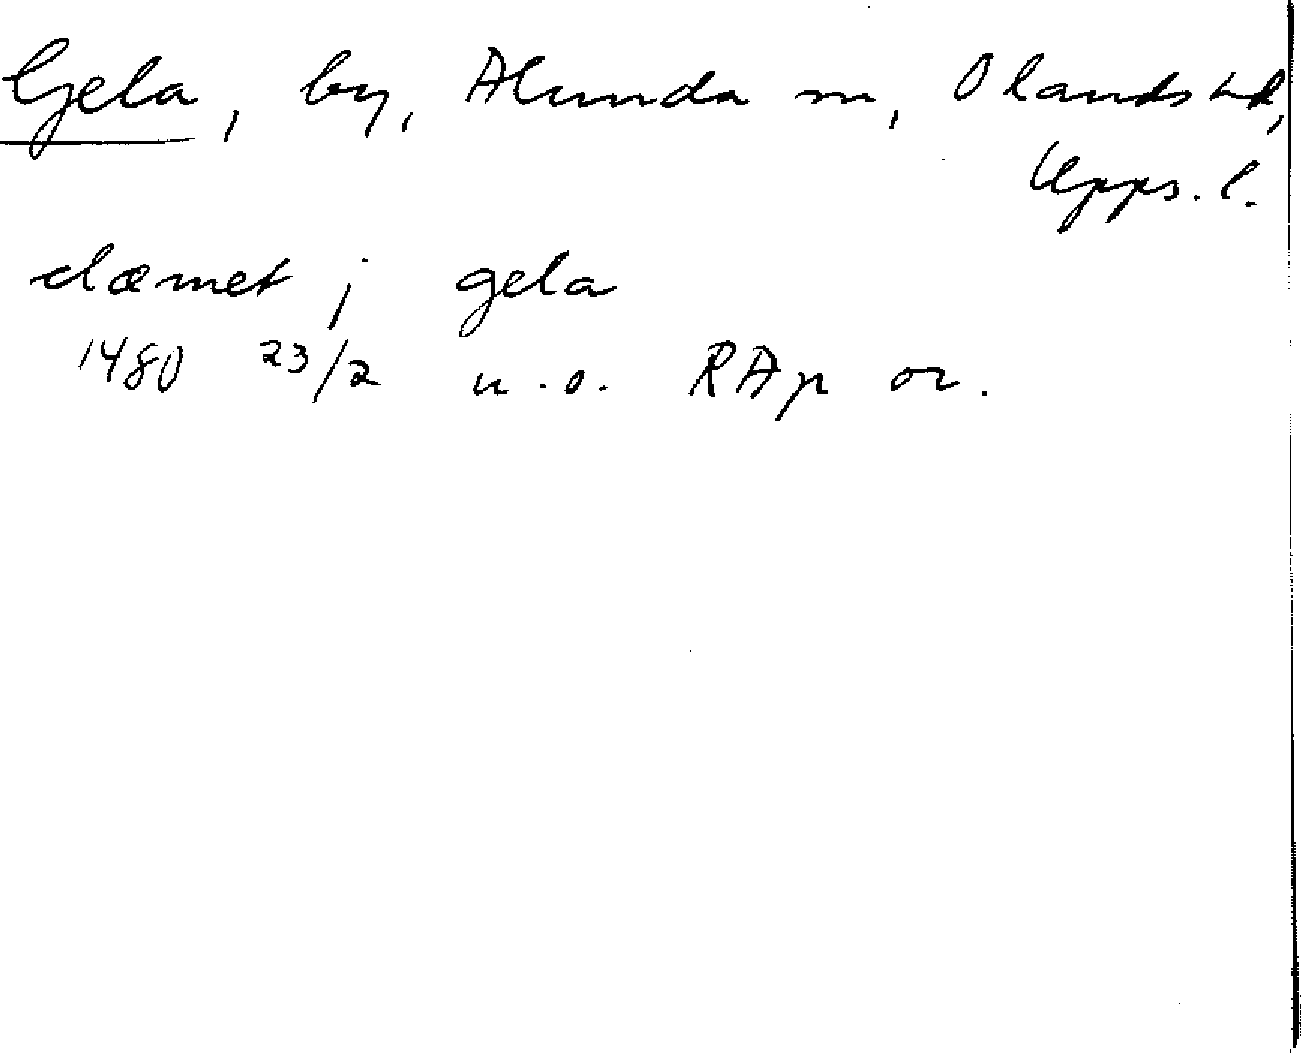 Gela, by, Alunda sn, Olands hd,
Upps. l.
clæmet j gela
1480 23/2 u.o. RAp or.